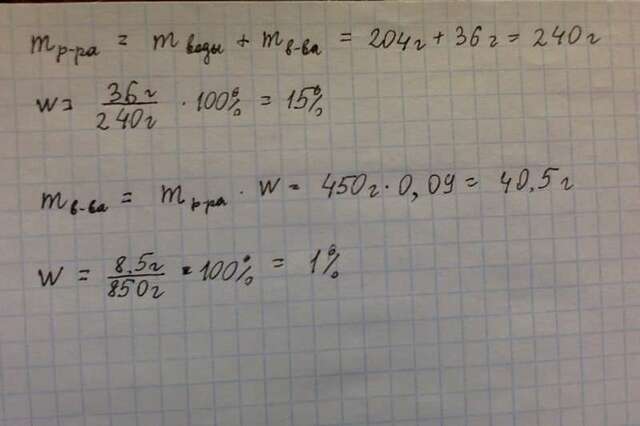 m р-ра = m воды + m в-ва = 204г + 36г = 240г
w = 36г/240г · 100% = 15%
m в-ва = m р-ра · w = 450г · 0,09 = 40,5г
w = 8,5г/850г · 100% = 1%